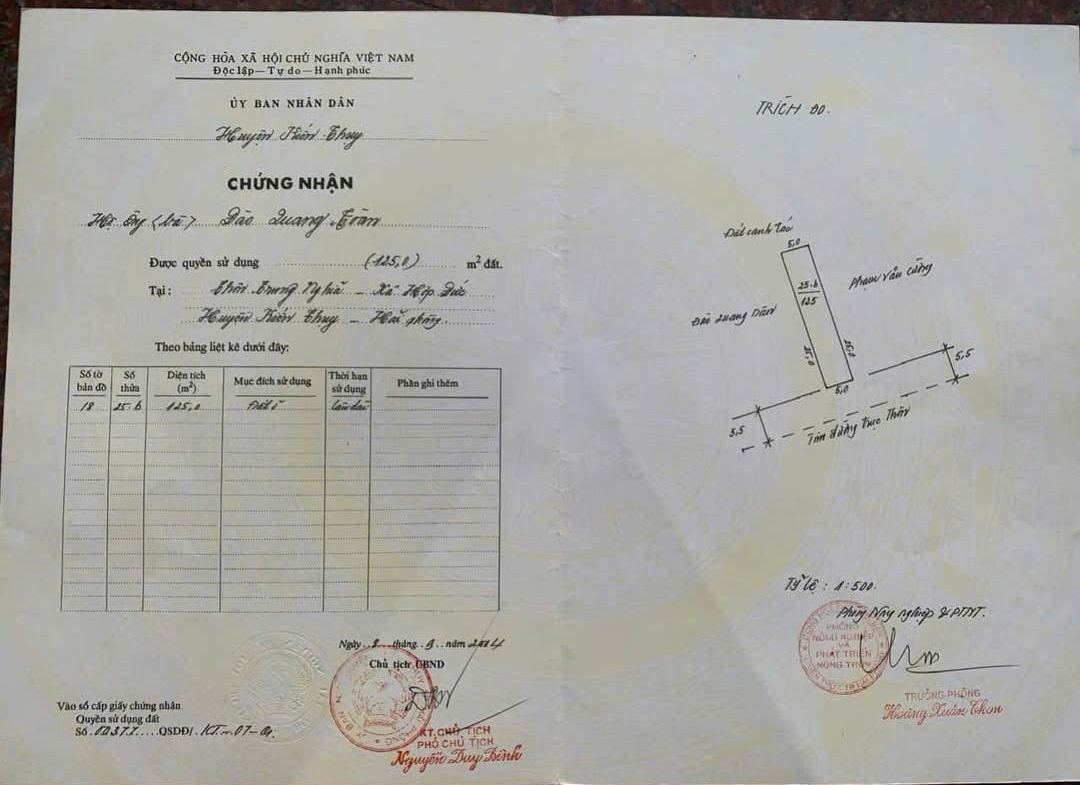 CỘNG HÒA XÃ HỘI CHỦ NGHĨA VIỆT NAM
Độc lập — Tự do — Hạnh phúc
ỦY BAN NHÂN DÂN
Huyện Kiến Thụy
CHỨNG NHẬN
Hộ Ông (bà) Đào Quang Toàn
Được quyền sử dụng (125,0) m² đất.
Tại: Thôn Trung Nghĩa – Xã Hợp Đức
Huyện Kiến Thụy – Hải phòng
Theo bảng liệt kê dưới đây:
Số tờ bản đồ Số thửa Diện tích (m²) Mục đích sử dụng Thời hạn sử dụng Phần ghi thêm
18 25-b 125,0 Đất ở Lâu dài
Ngày 8 tháng 9 năm 2004
Chủ tịch UBND
KT.CHỦ TỊCH
PHÓ CHỦ TỊCH
Nguyễn Duy Bình
Vào sổ cấp giấy chứng nhận
Quyền sử dụng đất
Số QSDĐ/
TRÍCH ĐO.
Đất canh tác
5,0
Phạm Văn
25-b
125
Đào Quang Dân
25,0
25,0
5,0
5,5
5,5
Tim đường trục Thôn
Tỷ lệ : 1:500.
Phòng Nông nghiệp & PTNT.
PHÒNG
NÔNG NGHIỆP
VÀ
PHÁT TRIỂN
NÔNG THÔN
TRƯỞNG PHÒNG
Hoàng Xuân